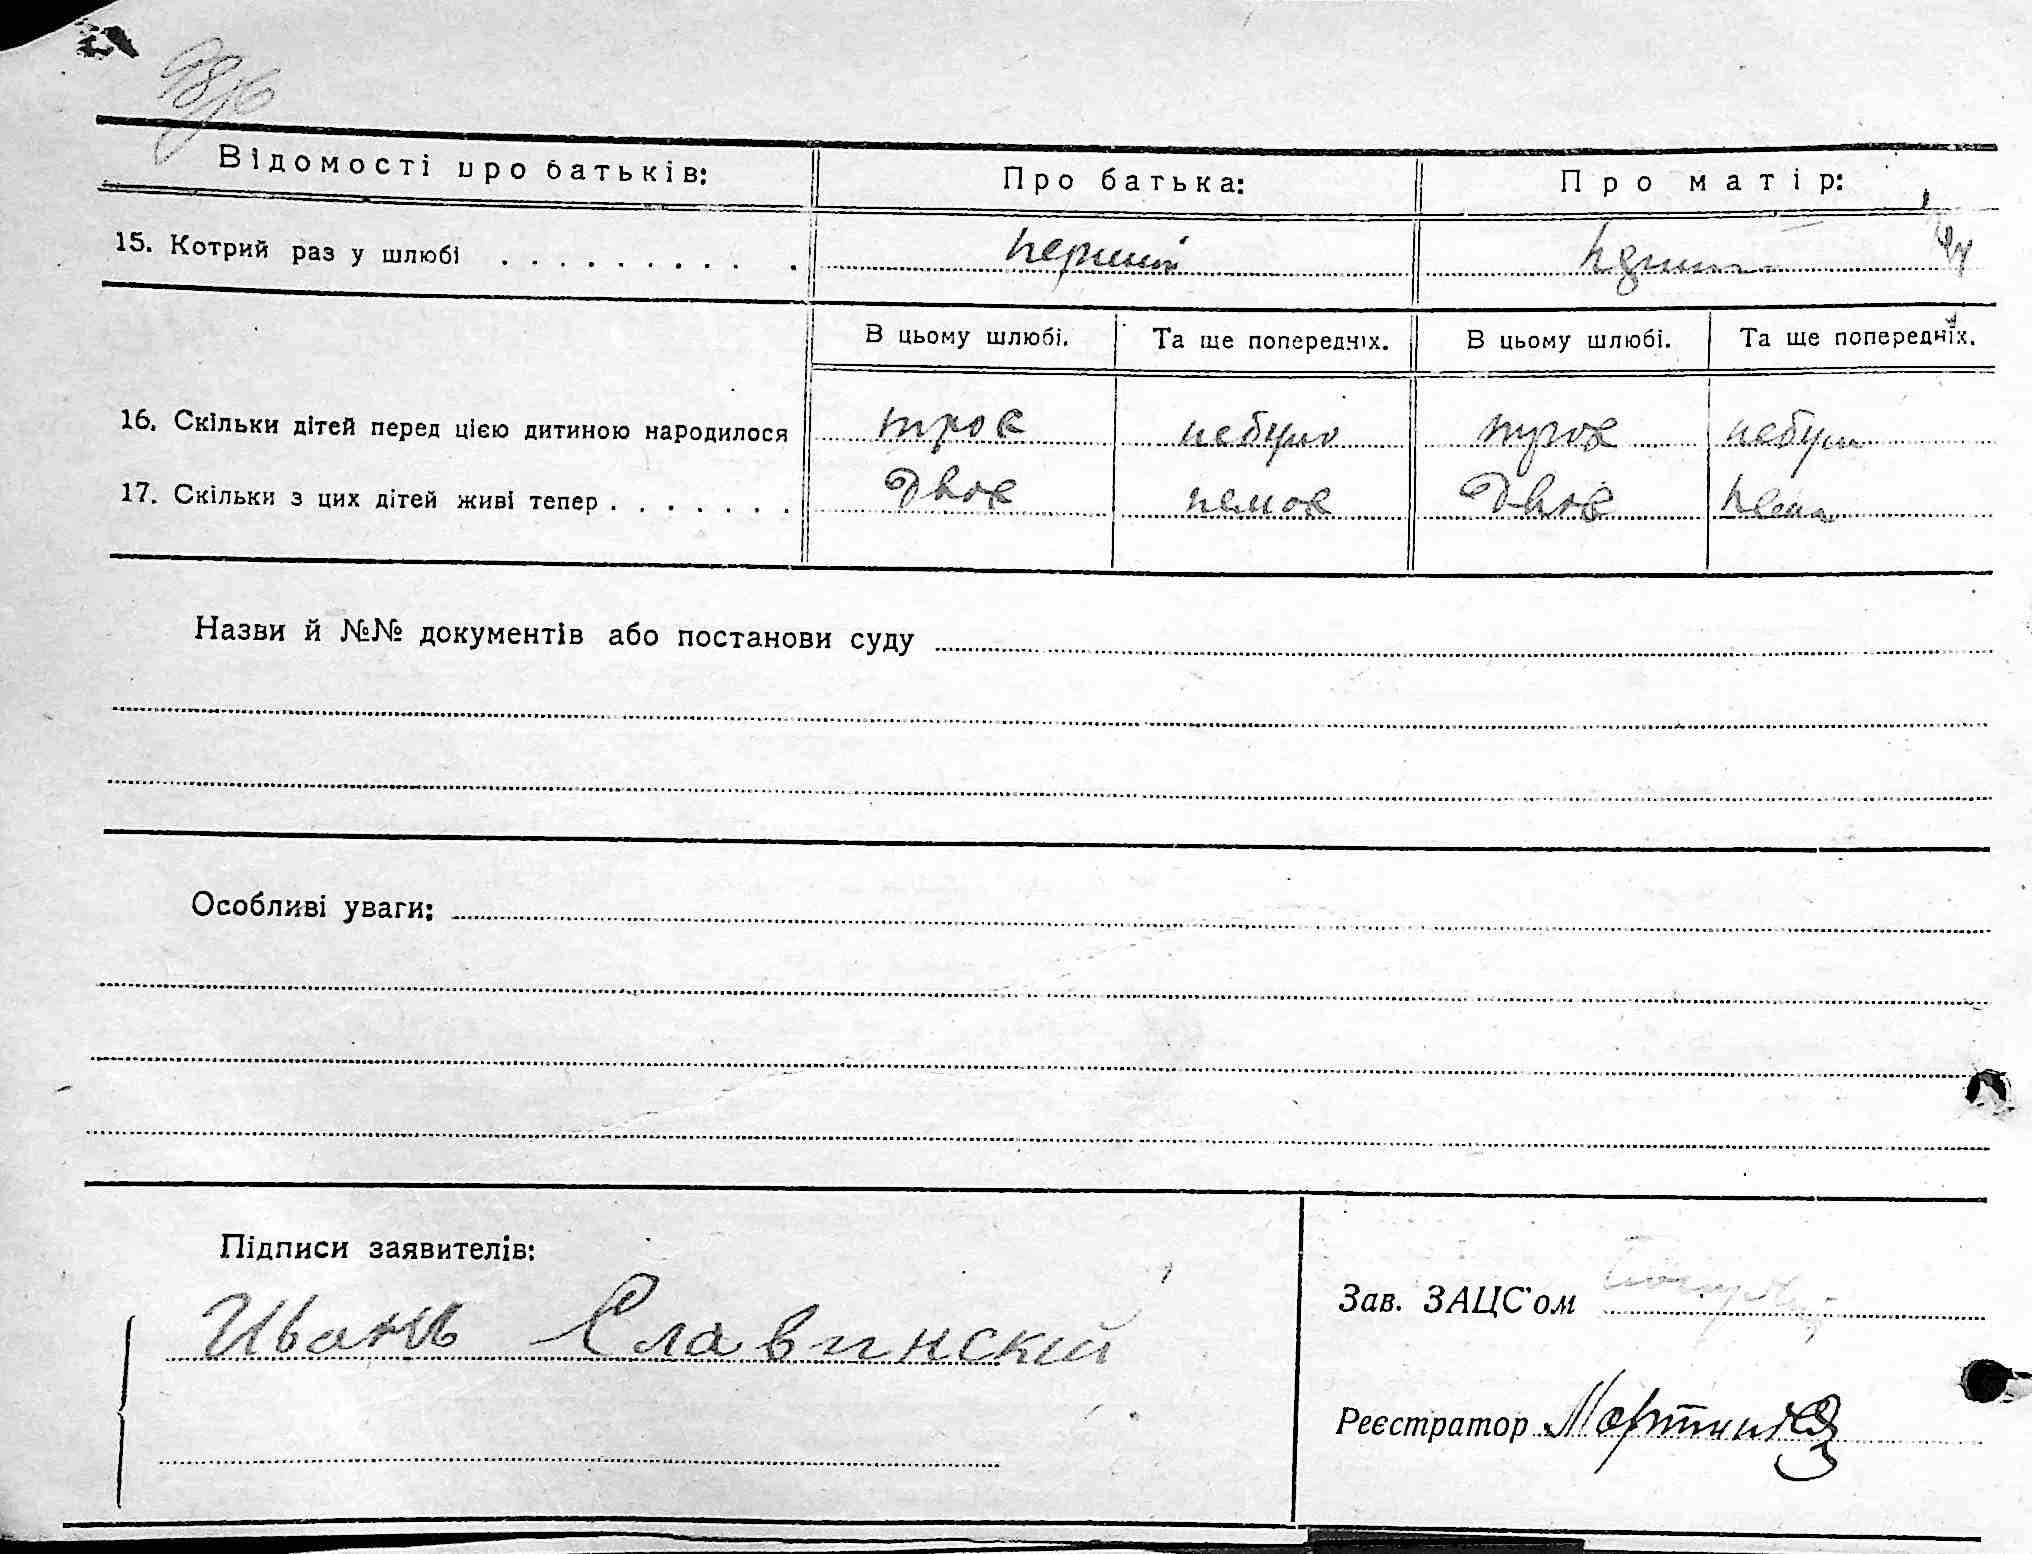 Відомості про батьків: Про батька: Про матір:
15. Котрий раз у шлюбі . . . . . . . . . . перший
В цьому шлюбі. Та ще попередніх. В цьому шлюбі. Та ще попередніх.
16. Скільки дітей перед цією дитиною народилося троє небуло троє небуло
17. Скільки з цих дітей живі тепер . . . . . . . Двоє немає Двоє
Назви й №№ документів або постанови суду
Особливі уваги:
Підписи заявителів:
Иванъ Славинскій
Зав. ЗАЦС'ом
Реєстратор